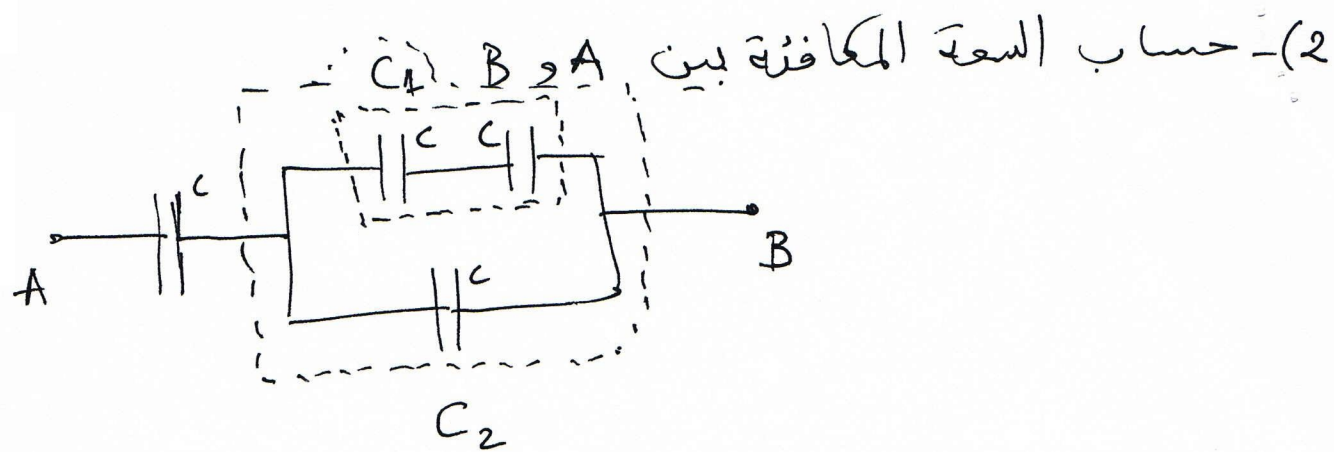 2)- حساب السعة المكافئة بين A و B :-
C1
C C
C
A
B
C
C2